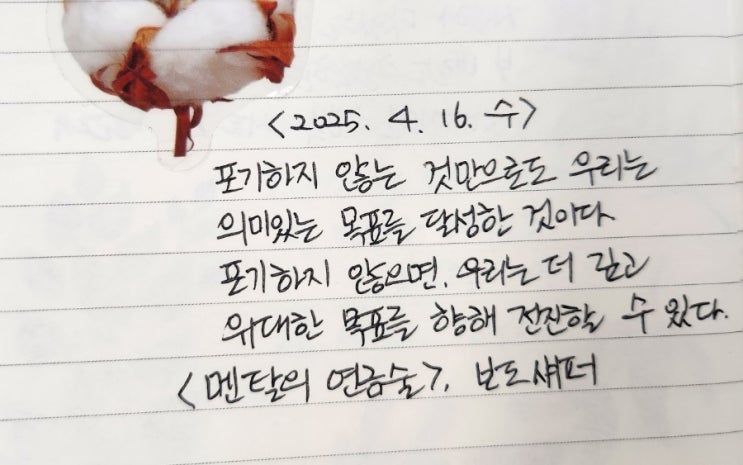 <2025. 4. 16. 수>
포기하지 않는 것만으로도 우리는
의미있는 목표를 달성한 것이다
포기하지 않으면, 우리는 더 깊고
위대한 목표를 향해 전진할 수 있다.
<멘탈의 연금술>, 보도 섀퍼